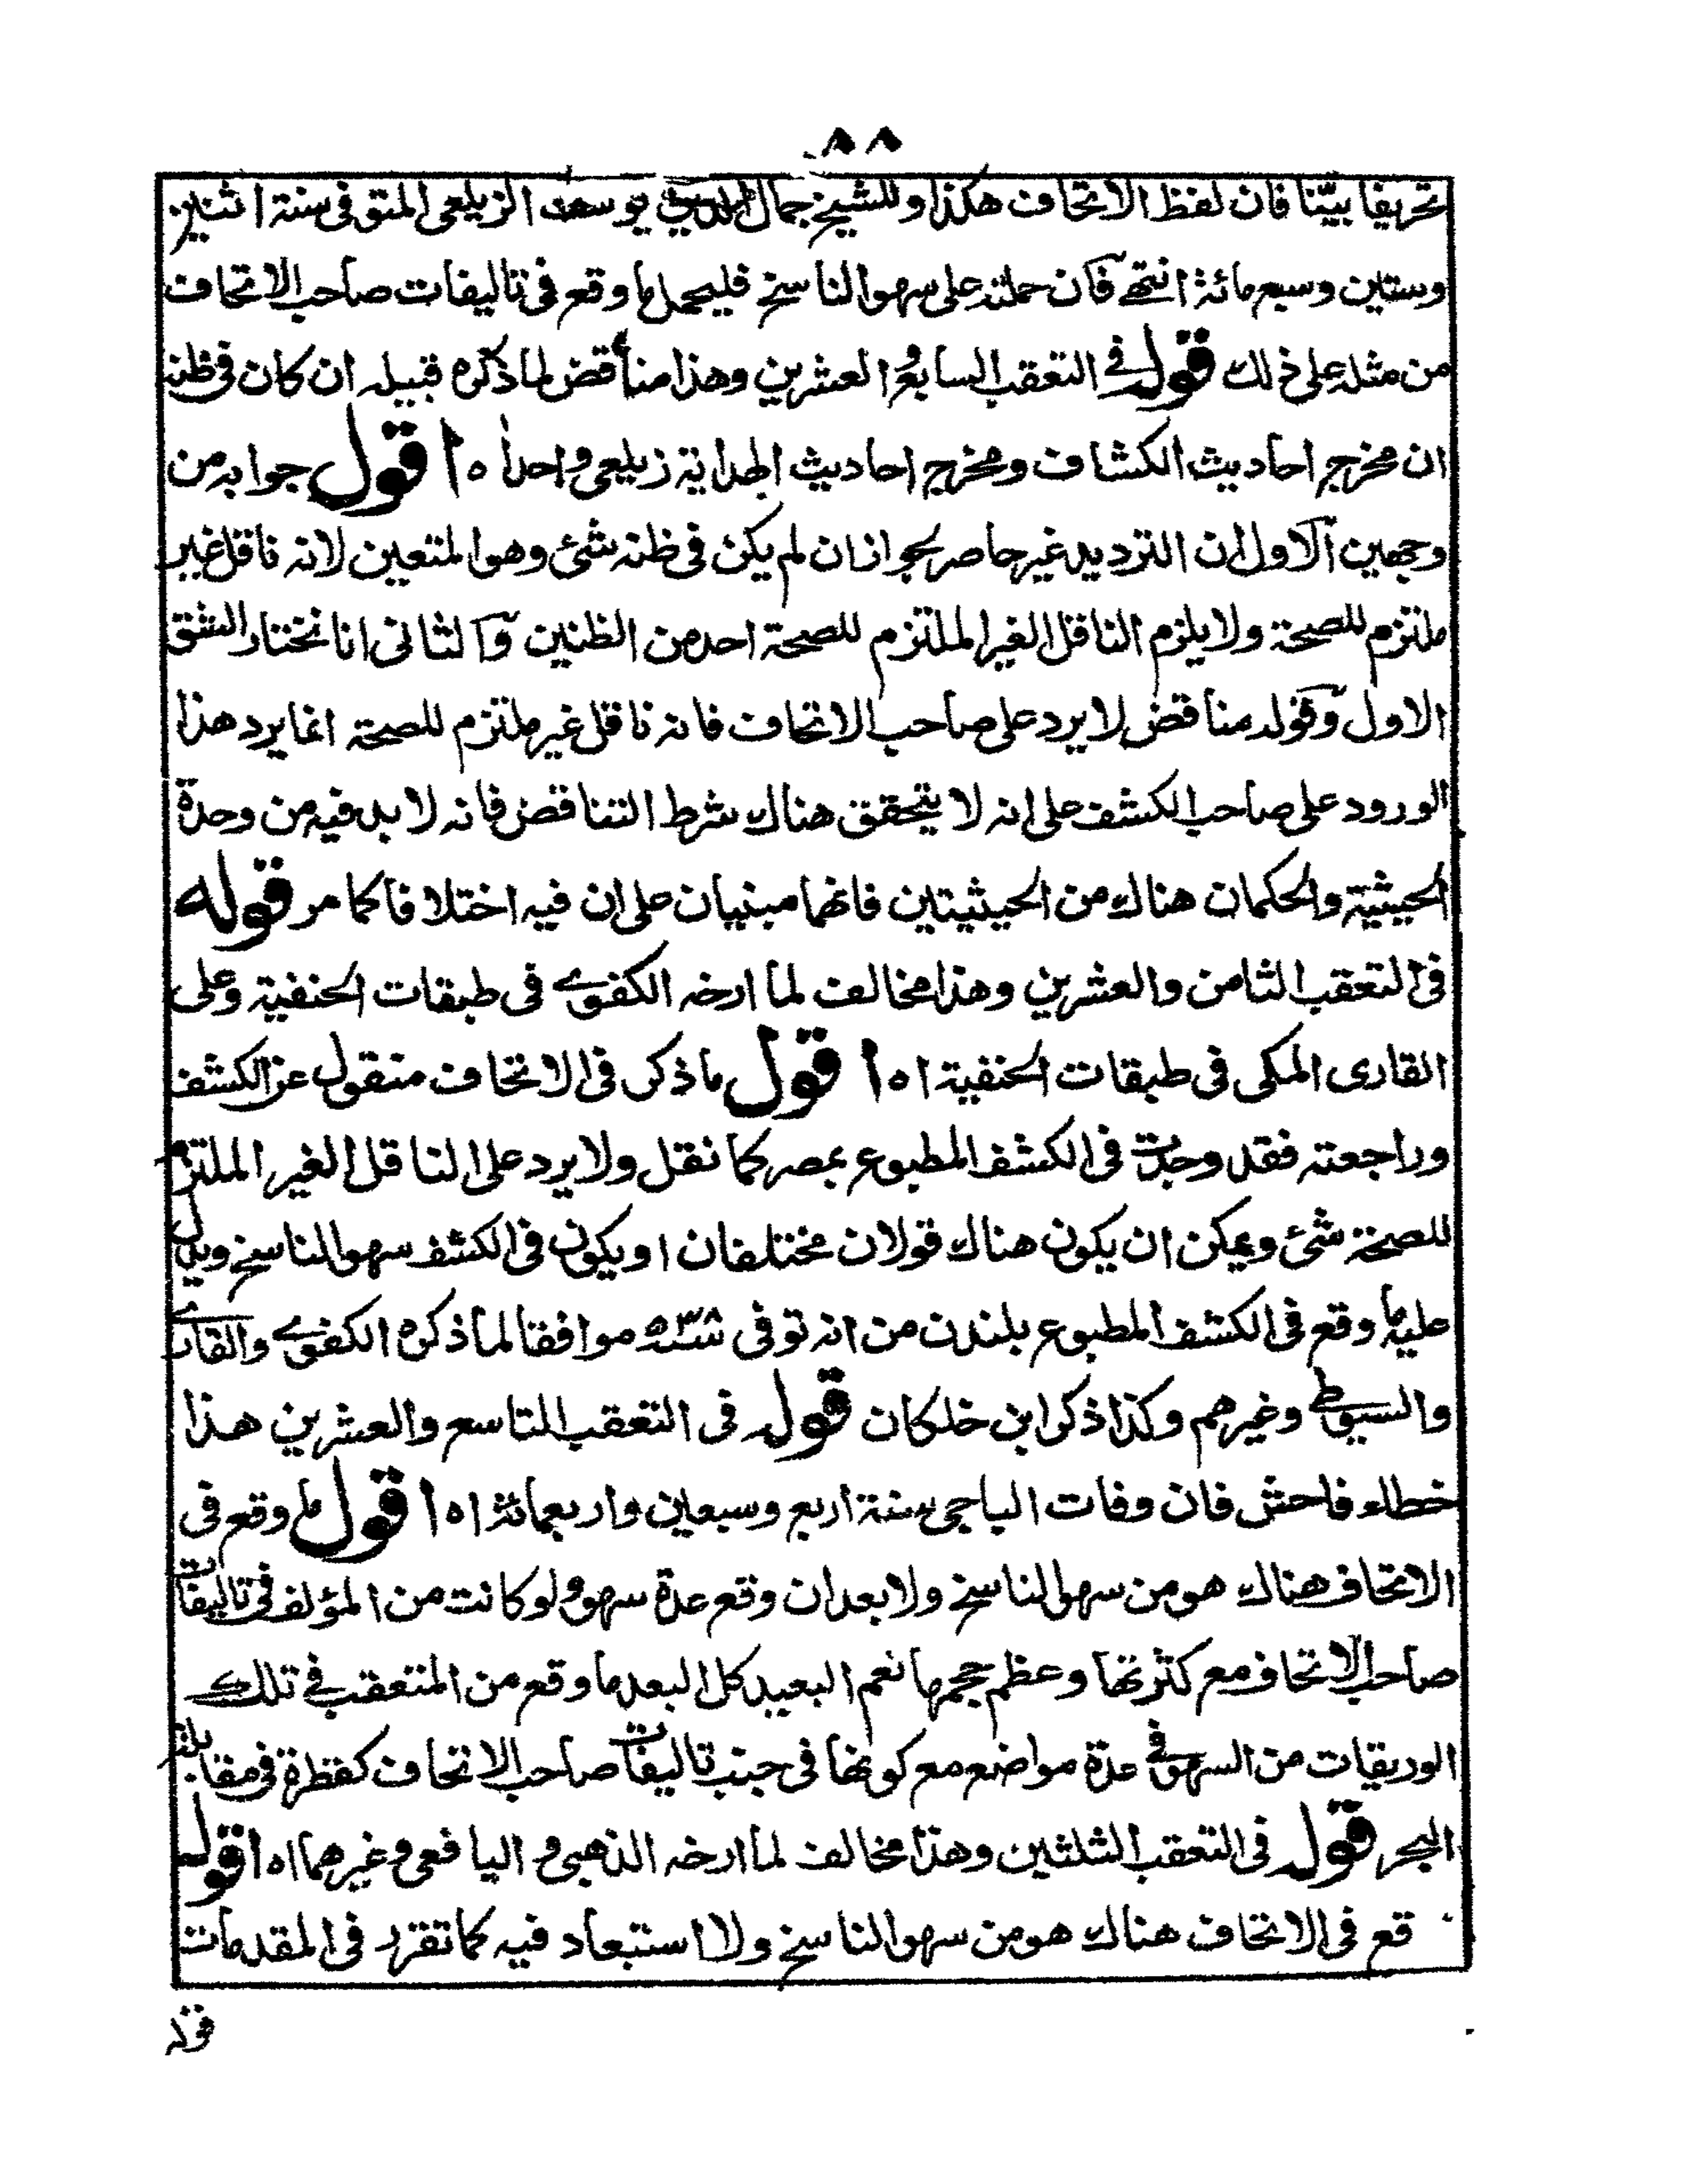 ٨٨
تحريفا بيّنا فان لفظ الاتحاف هكذا وللشيخ جمال الدين يوسف الزيلعى المتوفى سنة اثنين
وستين وسبعمائة انتهے فان حملته على سهو الناسخ فليحمل ما وقع فى تاليفات صاحب الاتحاف
من مثله على ذلك قوله فے التعقب السابع والعشرين وهذا مناقض لما ذكره قبيله ان كان فى ظنه
ان مخرج احاديث الكشاف ومخرج احاديث الهداية زيلعى واحد اه اقول جوابه من
وجهين الاول ان الترديد غير حاصر لجواز ان لم يكن فى ظنه شئ وهو المتعين لانه ناقل غير
ملتزم للصحة ولا يلزم الناقل الغير الملتزم للصحة احد من الظنين والثانى انا نختار الشق
الاول وقوله مناقض لا يرد على صاحب الاتحاف فانه ناقل غير ملتزم للصحة انما يرد هذا
الورود على صاحب الكشف على انه لا يتحقق هناك شرط التناقض فانه لا بد فيه من وحدة
الحيثية والحكمان هناك من الحيثيتين فانهما مبنيان على ان فيه اختلافا كما مر قوله
فى التعقب الثامن والعشرين وهذا مخالف لما ارخه الكفوے فى طبقات الحنفية وعلى
القارى المكى فى طبقات الحنفية اه اقول ما ذكر فى الاتحاف منقول عن الكشف
وراجعته فقد وجدت فى الكشف المطبوع بمصر كما نقل ولا يرد على الناقل الغير الملتزم
للصحة شئ ويمكن ان يكون هناك قولان مختلفان او يكون فى الكشف سهو الناسخ ويدل
عليه ما وقع فى الكشف المطبوع بلندن من انه توفى سنة ٥٣٨ موافقا لما ذكره الكفوے والقارے
والسيوطے وغيرهم وكذا ذكر ابن خلكان قوله فى التعقب التاسع والعشرين هذا
خطاء فاحش فان وفات الباجى سنة اربع وسبعين واربعمائة اه اقول ما وقع فى
الاتحاف هناك هو من سهو الناسخ ولا بعد ان وقع عدة سهو ولو كانت من المؤلف فى تاليفات
صاحب الاتحاف مع كثرتها وعظم حجمها نعم البعيد كل البعد ما وقع من المتعقب فے تلك
الوريقات من السهو فے عدة مواضع مع كونها فى جنب تاليفات صاحب الاتحاف كقطرة فى مقابلة
البحر قوله فى التعقب الثلثين وهذا مخالف لما ارخه الذهبى و اليافعى وغيرهما اه اقول
قع فى الاتحاف هناك هو من سهو الناسخ ولا استبعاد فيه كما تقرر فى المقدمات
قوله